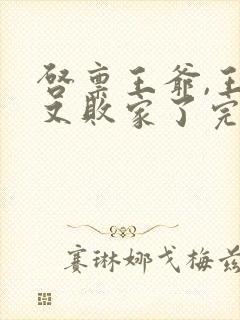 启禀王爷,王
又败家了完
赛琳娜戈梅兹